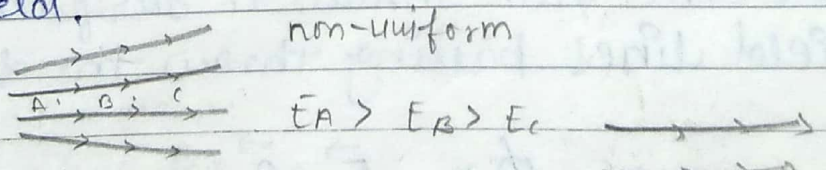 non-uniform
A B C
EA > EB > EC